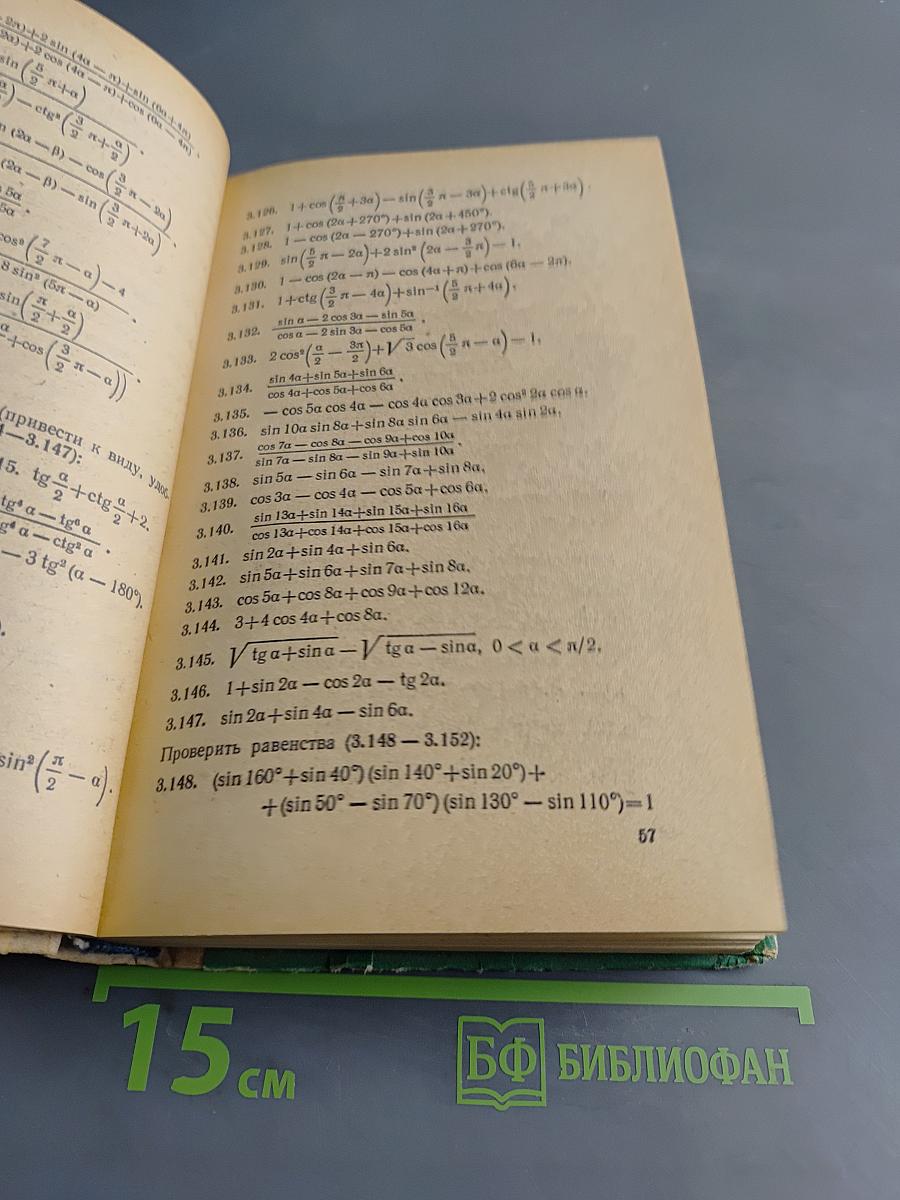 2π)+2 sin (4α — π)+sin (6α+4π)
2α)+2 cos (4α — π)+cos (6α — 4π) .
sin(5/2 π+α)
) — ctg²(3/2 π+α/2) .
(2α — β) — cos(3/2 π — 2α)
(2α — β) — sin(3/2 π+2α) .
5α
5α .
cos²(7/2 π — α) — 4
8 sin² (5π — α) .
sin(π/2+α/2)
+cos(3/2 π — α)) .
(привести к виду,
—3.147):
15. tg α/2+ctg α/2+2.
tg⁴ α — tg⁶ α
α — ctg² α .
— 3 tg² (α — 180°).
).
sin²(π/2 — α).
3.126. 1+cos(π/2+3α) — sin(3/2 π — 3α)+ctg(5/2 π+3α).
3.127. 1+cos (2α+270°)+sin (2α+450°).
3.128. 1 — cos (2α — 270°)+sin (2α+270°).
3.129. sin(5/2 π — 2α)+2 sin² (2α — 3/2 π) — 1.
3.130. 1 — cos (2α — π) — cos (4α+π)+cos (6α — 2π).
3.131. 1+ctg(3/2 π — 4α)+sin⁻¹(5/2 π+4α).
3.132. sin α — 2 cos 3α — sin 5α / cos α — 2 sin 3α — cos 5α .
3.133. 2 cos²(α/2 — 3π/2)+√3 cos(5/2 π — α) — 1.
3.134. sin 4α+sin 5α+sin 6α / cos 4α+cos 5α+cos 6α .
3.135. — cos 5α cos 4α — cos 4α cos 3α+2 cos² 2α cos α.
3.136. sin 10α sin 8α+sin 8α sin 6α — sin 4α sin 2α.
3.137. cos 7α — cos 8α — cos 9α+cos 10α / sin 7α — sin 8α — sin 9α+sin 10α .
3.138. sin 5α — sin 6α — sin 7α+sin 8α.
3.139. cos 3α — cos 4α — cos 5α+cos 6α.
3.140. sin 13α+sin 14α+sin 15α+sin 16α / cos 13α+cos 14α+cos 15α+cos 16α
3.141. sin 2α+sin 4α+sin 6α.
3.142. sin 5α+sin 6α+sin 7α+sin 8α.
3.143. cos 5α+cos 8α+cos 9α+cos 12α.
3.144. 3+4 cos 4α+cos 8α.
3.145. √tg α+sin α — √tg α — sin α, 0 < α < π/2.
3.146. 1+sin 2α — cos 2α — tg 2α.
3.147. sin 2α+sin 4α — sin 6α.
Проверить равенства (3.148 — 3.152):
3.148. (sin 160°+sin 40°) (sin 140°+sin 20°)+
+(sin 50° — sin 70°) (sin 130° — sin 110°)=1
57
15 см
БФ БИБЛИОФАН